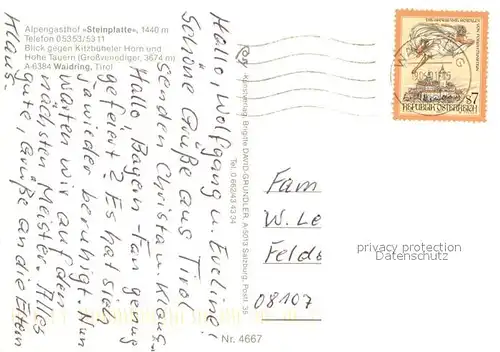 Alpengasthof »Steinplatte«, 1440 m
Telefon 05353/5311
Blick gegen Kitzbüheler Horn und
Hohe Tauern (Großvenediger, 3674 m)
A-6384 Waidring, Tirol
Hallo, Wolfgang u. Eveline!
Schöne Grüße aus Tirol
senden Christa u. Klaus.
Hallo, Bayern-Fan genug
gefeiert? Es hat sich
ja wieder beruhigt. Nun
warten wir auf den
nächsten Meister. Alles
gute, Grüße an die Eltern
Klaus.
Alpinverlag, Brigitte DAVID-GRÜNDLER, A-5013 Salzburg, Postf. 35
Tel. 0 662/43 43 34
Nr. 4667
REPUBLIK ÖSTERREICH
S7
Fam
W. Le
Felds
08107
privacy protection
Datenschutz